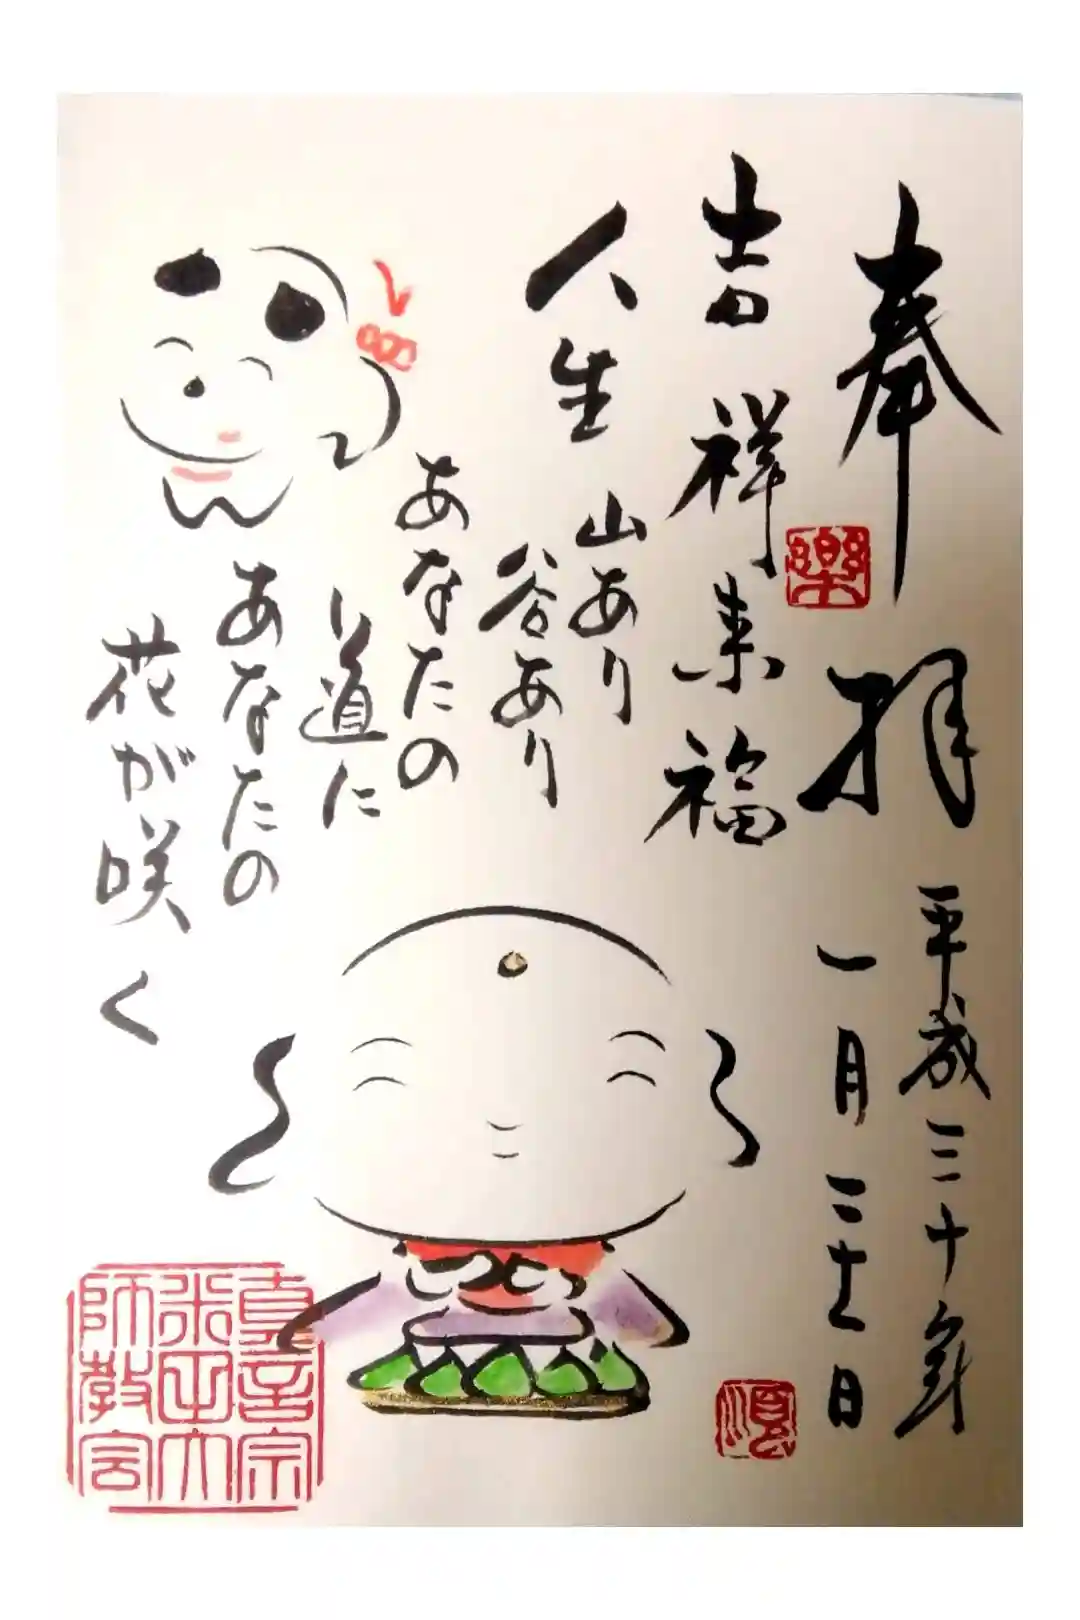 奉拝
平成三十年
一月三十一日
吉祥来福
人生
山あり
谷あり
あなたの
道に
あなたの
花が咲く
楽
真言宗
師教会